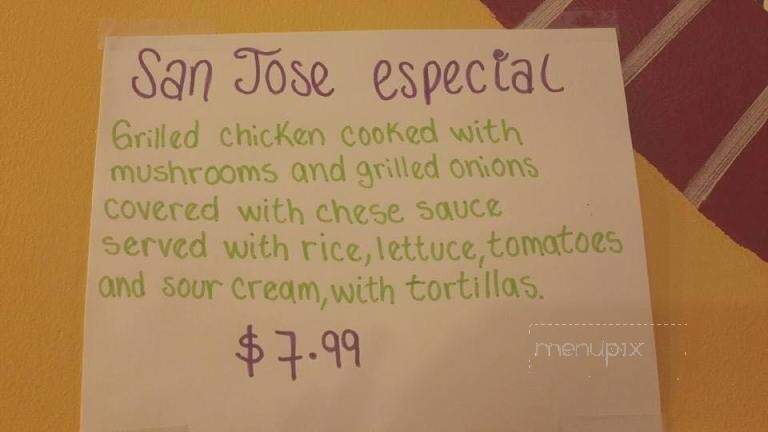 San Jose especial
Grilled chicken cooked with
mushrooms and grilled onions
covered with chese sauce
served with rice, lettuce, tomatoes
and sour cream, with tortillas.
$7.99
menupix